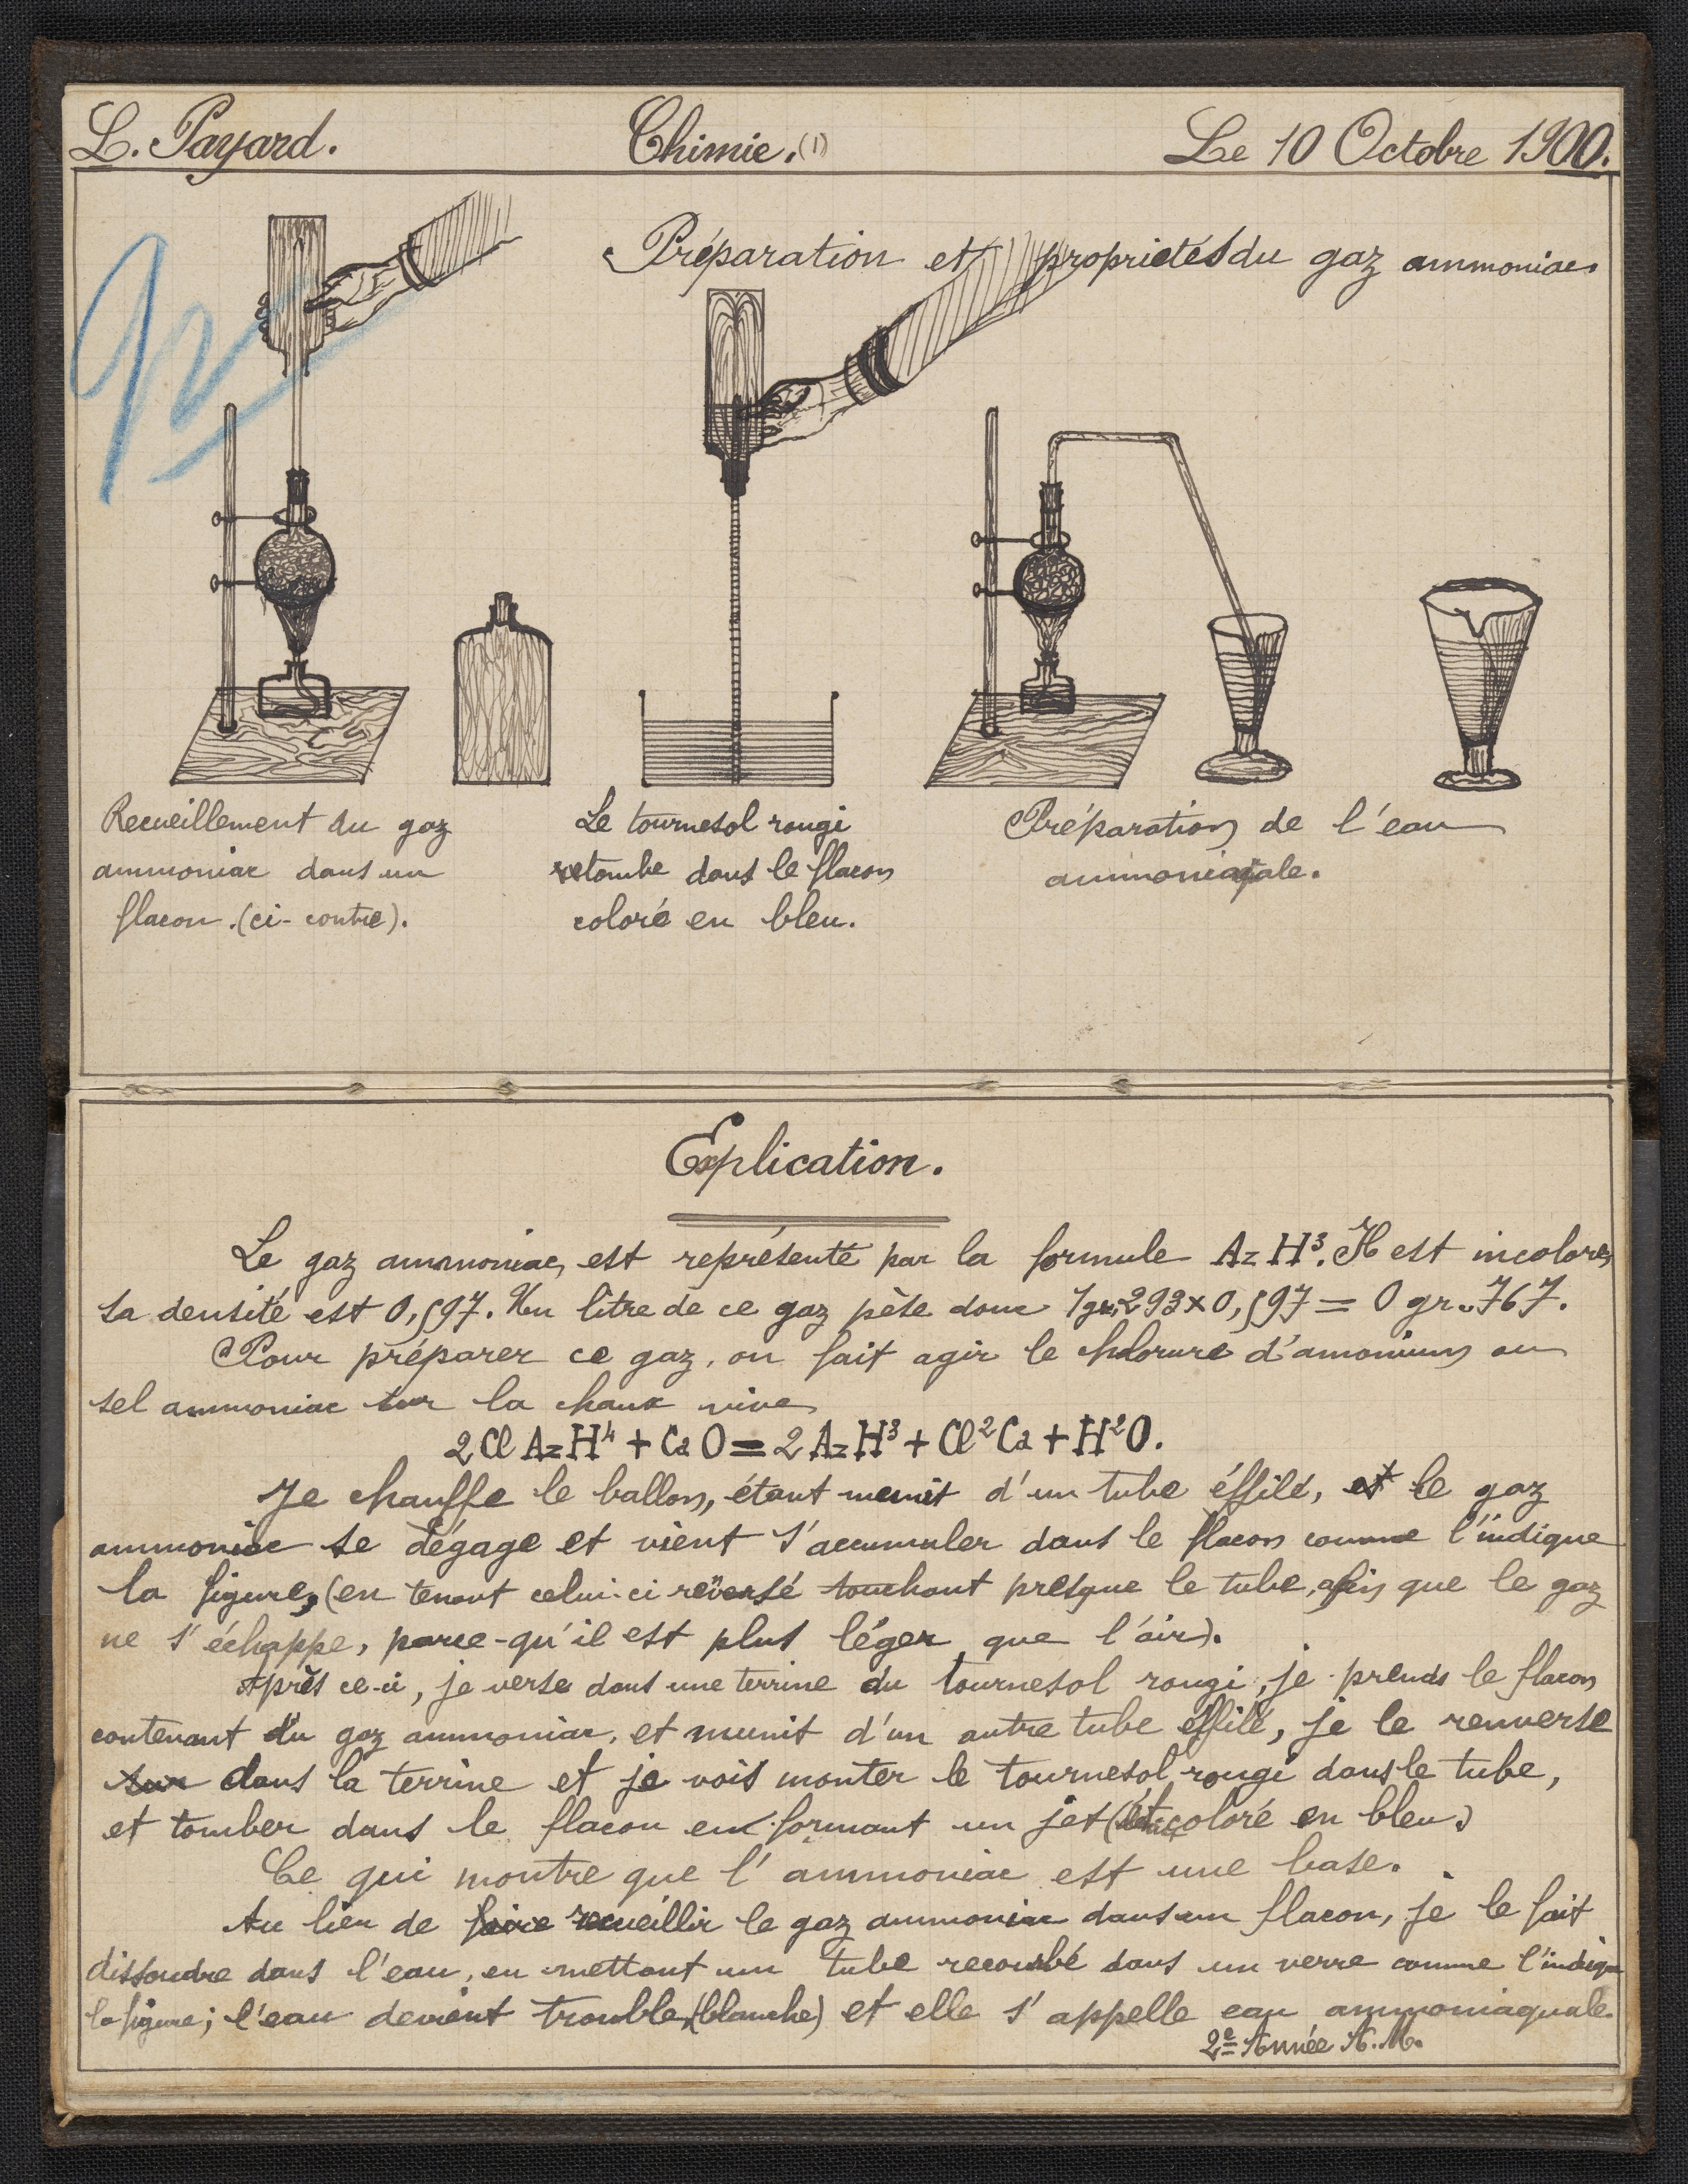 L. Payard.
Chimie. (1)
Le 10 Octobre 1900.
Préparation et propriétés du gaz ammoniac.
Recueillement du gaz
ammoniac dans un
flacon. (ci-contre).
Le tournesol rougi
retombe dans le flacon
coloré en bleu.
Préparation de l'eau
ammoniacale.
Explication.
Le gaz ammoniac, est représenté par la formule AzH³. Il est incolore,
sa densité est 0,597. Un litre de ce gaz pèse donc 1gr,293 x 0,597 = 0 gr.767.
Pour préparer ce gaz, on fait agir le chlorure d'amonium ou
sel ammoniac sur la chaux vive
2 Cl AzH⁴ + CaO = 2 AzH³ + Cl²Ca + H²O.
Je chauffe le ballon, étant munit d'un tube éffilé, et le gaz
ammoniac se dégage et vient s'accumuler dans le flacon comme l'indique
la figure, (en tenant celui-ci reversé touchant presque le tube, afin que le gaz
ne s'échappe, parce-qu'il est plus léger que l'air).
Après ce-ci, je verse dans une terrine du tournesol rougi, je prends le flacon
contenant du gaz ammoniac, et munit d'un autre tube effilé, je le renverse
sur dans la terrine et je vois monter le tournesol rougi dans le tube,
et tomber dans le flacon en formant un jet (coloré en bleu.)
Ce qui montre que l'ammoniac est une base.
Au lieu de faire recueillir le gaz ammoniac dans un flacon, je le fait
dissoudre dans l'eau, en mettant un tube recourbé dans un verre comme l'indique
la figure; l'eau devient trouble, (blanche) et elle s'appelle eau ammoniaquale.
2e Année A. M.